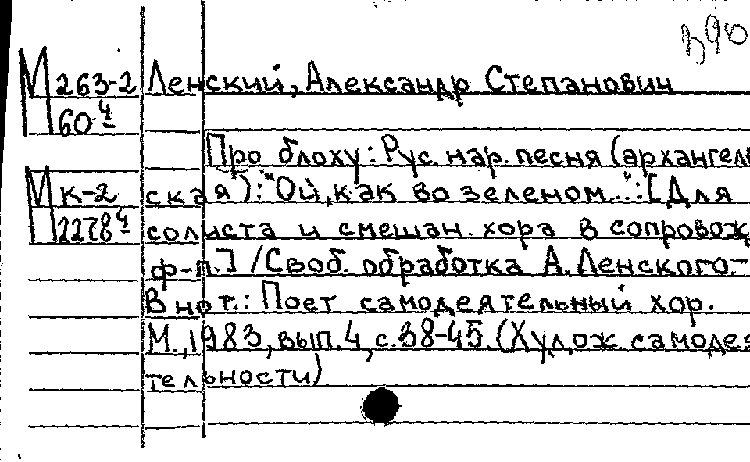 М 263-2 Ленский, Александр Степанович
60 ч
Про блоху: Рус. нар. песня (архангель
М к-2 ская): "Ой, как во зеленом...": [Для
2278 ч солиста и смешан. хора в сопровож
ф-п.] / Своб. обработка А. Ленского-
В нот.: Поет самодеятельный хор.
М., 1983, вып. 4, с. 38-45. (Худож самодея
тельности)